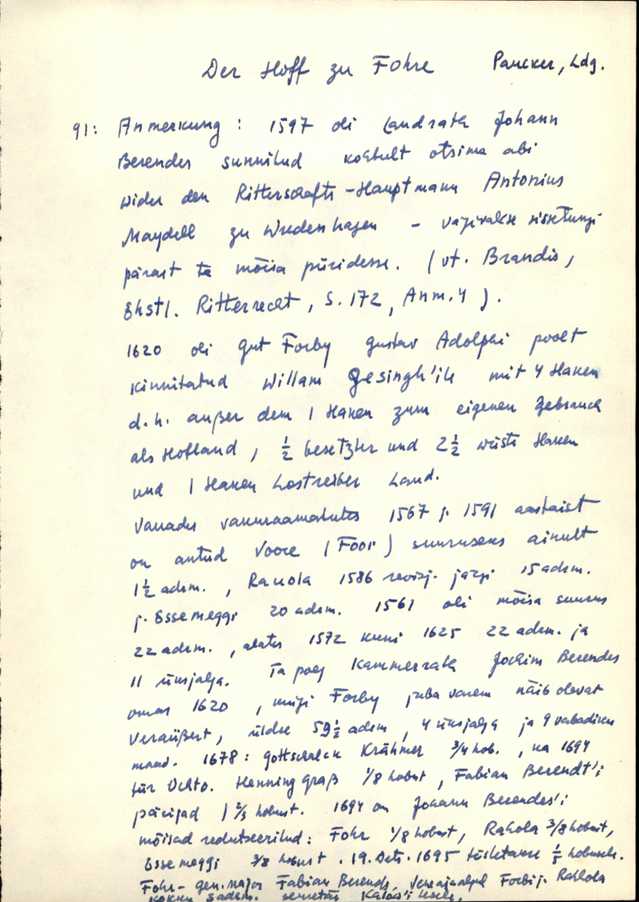 Der Hoff zu Fohre Paucker, Ldg.
91: Anmerkung : 1597 oli Landrath Johann
Berendes sunnitud kohtult otsima abi
wider den Ritterschafts-Hauptmann Antonius
Maydell zu Wredenhagen - vägivalse sissetungi
pärast ta mõisa piiridesse. (vt. Brandis,
Ehstl. Ritterrecht, S. 172, Anm. 4).
1620 oli gut Forby Gustav Adolphi poolt
kinnitatud Willam Gesingh'ile mit 4 Haken
d.h. außer dem 1 Haken zum eigenen Gebrauch
als Hofland, ½ besetzter und 2½ wüste Haken
und 1 Haken Lostreiber Land.
Vanades vakuraamatutes 1567 j. 1591 aastaist
on antud Voore (Foor) suuruseks ainult
1½ adrm., Rakola 1586 revisj. järgi 15 adrm.
j. Essemeggi 20 adrm. 1561 oli mõisa suurus
22 adrm., alates 1572 kuni 1625 22 adrm. ja
11 üksjalga. Ta poeg Kammerrath Jochim Berendes
omas 1620, müüs Forby juba varem näib olevat
veräußert, üldse 59½ adrm, 4 üksjalga ja 9 vabadiku
maad. 1678: Gottschalck Krähmer ¾ hob., ka 1694
für Uchto. Henning Graß 1/8 hobust, Fabian Berendt'i
pärijad 1⅔ hobust. 1694 on Johann Berendes'i
mõisad redutseeritud: Fohr 1/8 hobust, Rakola 3/8 hobust,
Essemeggi 3/8 hobust. 19. Dets. 1695
Fohr - gen. major Fabian Berends, Forbi j. Rakola
kokku 5 adrm.